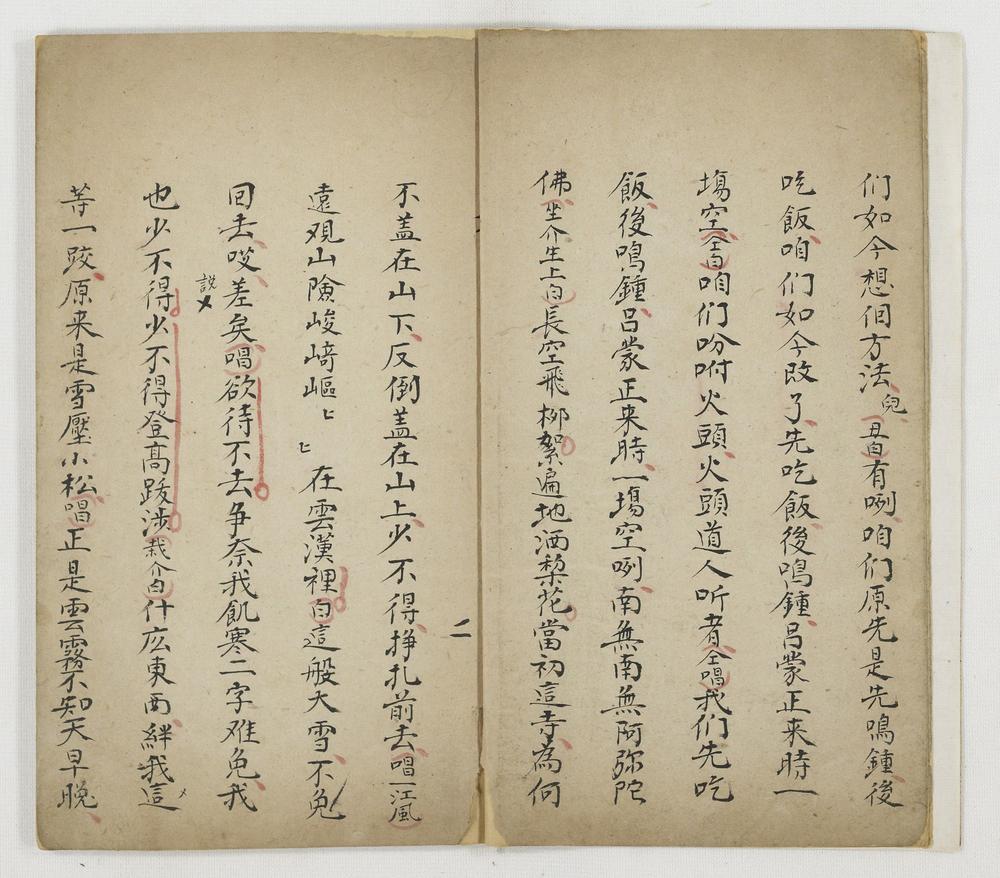 们如今想個方法兒丑白有咧咱们原先是先鳴鍾後
吃飯咱们如今改了先吃飯後鳴鍾吕蒙正来時一
塲空全白咱们吩咐火頭火頭道人听者全唱我们先吃
飯後鳴鍾吕蒙正来時一塲空咧南無南無阿弥陀
佛坐介生上白長空飛柳絮遍地洒梨花當初這寺為何
二
不盖在山下反倒盖在山上少不得挣扎前去唱一江風
遠观山險峻﨑嶇匕匕在雲漢裡白這般大雪不免
回去哎差矣唱欲待不去争奈我飢寒二字难免我
說
也少不得少不得登高跋涉栽介白什庅東西絆我這
等一跤原来是雪壓小松唱正是雲霧不知天早晚